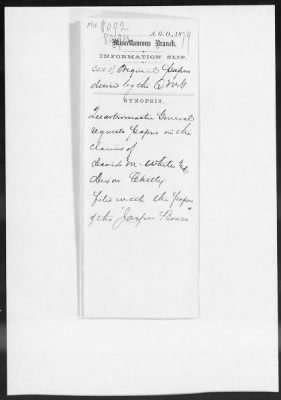 8092
A. G. O., 187
Miscellaneous Branch.
INFORMATION SLIP.
Case of Original Papers
desired by the Q M G
SYNOPSIS.
Quartermaster General
requests Papers in the
claims of
David M. White &
File with the "Papers"
of the "Jasper Rowe"